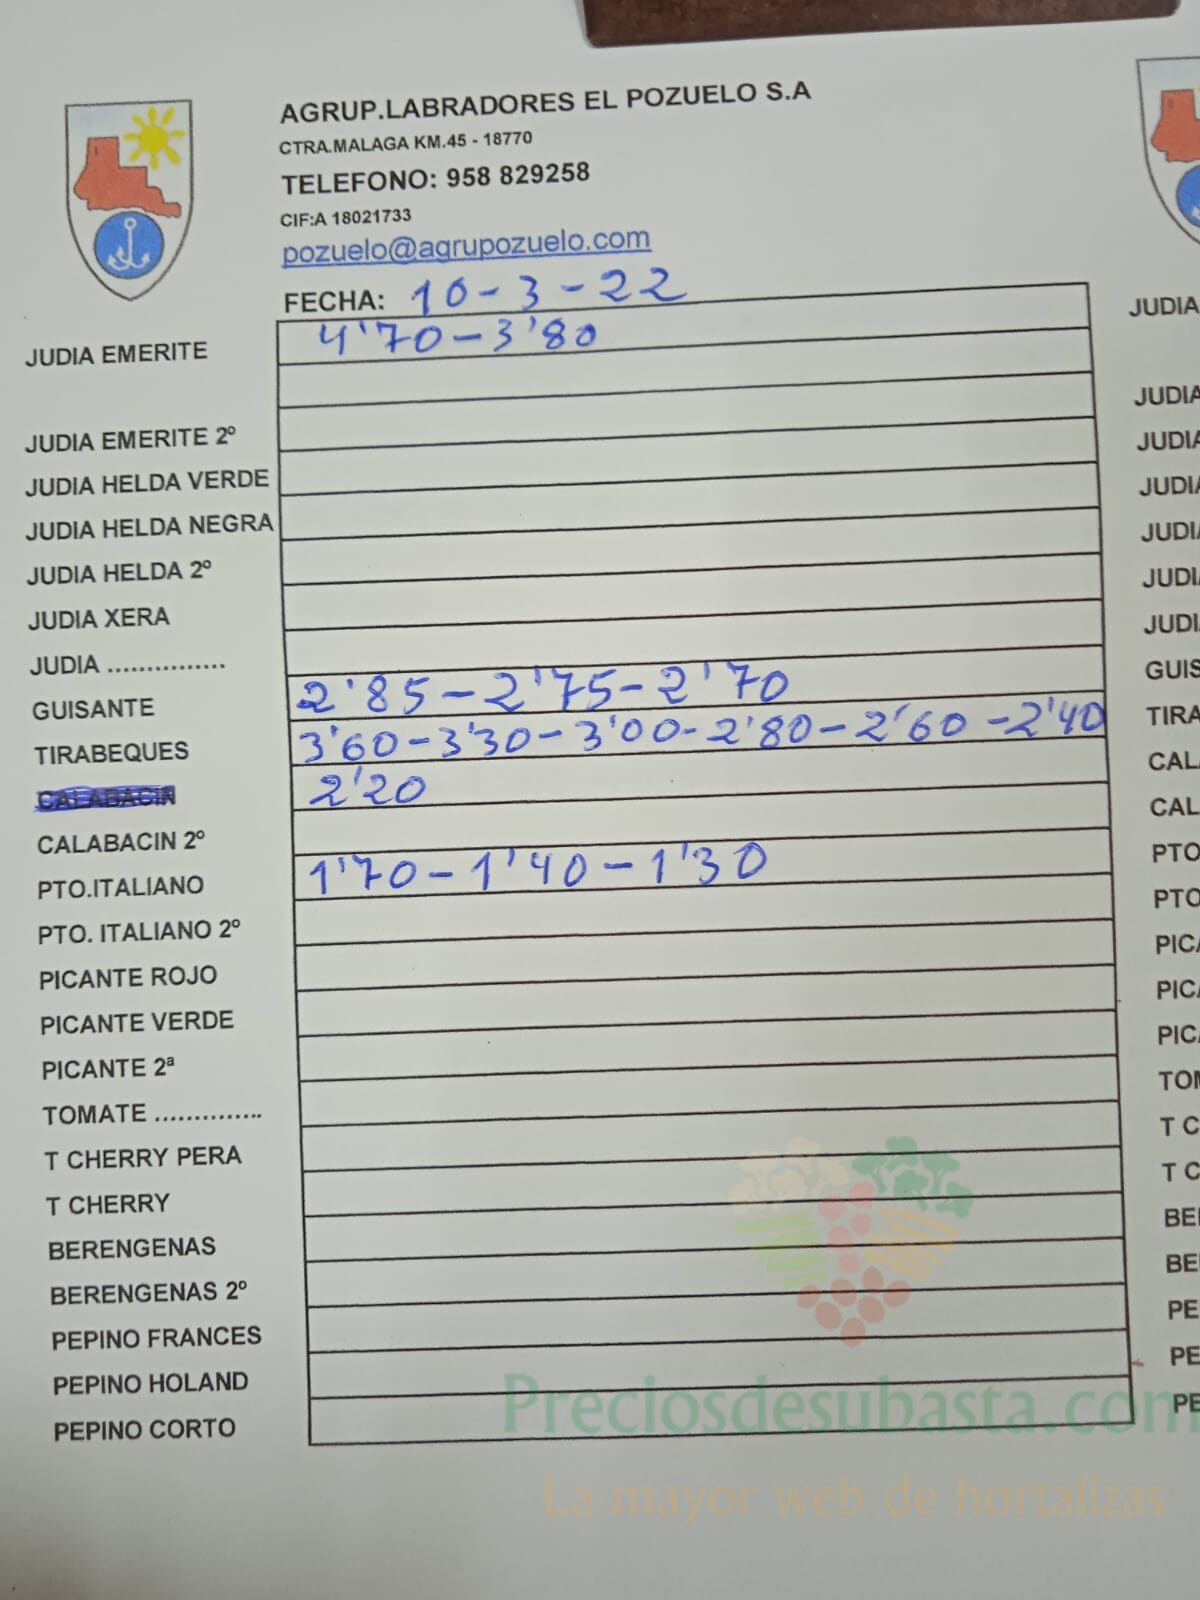 AGRUP.LABRADORES EL POZUELO S.A
CTRA.MALAGA KM.45 - 18770
TELEFONO: 958 829258
CIF:A 18021733
pozuelo@agrupozuelo.com
FECHA: 10-3-22
JUDIA EMERITE 4'70-3'80
JUDIA EMERITE 2º
JUDIA HELDA VERDE
JUDIA HELDA NEGRA
JUDIA HELDA 2º
JUDIA XERA
JUDIA ...............
GUISANTE 2'85-2'75-2'70
TIRABEQUES 3'60-3'30-3'00-2'80-2'60-2'40
CALABACIN 2'20
CALABACIN 2º
PTO.ITALIANO 1'70-1'40-1'30
PTO. ITALIANO 2º
PICANTE ROJO
PICANTE VERDE
PICANTE 2ª
TOMATE ..............
T CHERRY PERA
T CHERRY
BERENGENAS
BERENGENAS 2º
PEPINO FRANCES
PEPINO HOLAND
PEPINO CORTO
JUDIA
JUDIA
JUDIA
JUDIA
JUDI
JUDIA
JUDI
GUIS
TIRA
CAL
CAL
PTO
PTO
PIC
PIC
PIC
TOM
T C
T C
BE
BE
PE
PE
PE
Preciosdesubasta.com
La mayor web de hortalizas